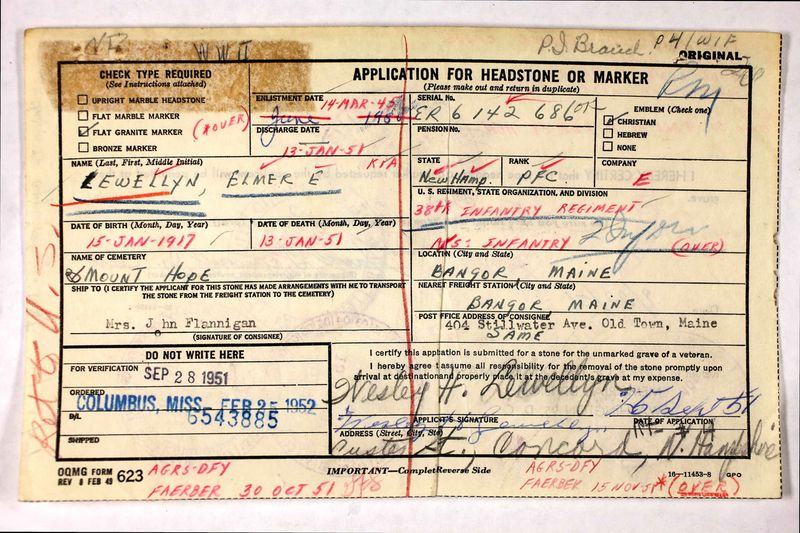 WWII
P.I. Branch P4/WIF
ORIGINAL
CHECK TYPE REQUIRED
(See Instructions attached)
UPRIGHT MARBLE HEADSTONE
FLAT MARBLE MARKER
FLAT GRANITE MARKER (*OVER)
BRONZE MARKER
APPLICATION FOR HEADSTONE OR MARKER
(Please make out and return in duplicate)
ENLISTMENT DATE 14-MAR-45
June
DISCHARGE DATE
13-JAN-51
KIA
SERIAL No.
ER 6 142 686 OK
PENSION No.
EMBLEM (Check one)
CHRISTIAN
HEBREW
NONE
NAME (Last, First, Middle Initial)
LEWELLYN, ELMER E
STATE
New Hamp.
RANK
PFC
COMPANY
E
U. S. REGIMENT, STATE ORGANIZATION, AND DIVISION
38th INFANTRY REGIMENT
DATE OF BIRTH (Month, Day, Year)
15-JAN-1917
DATE OF DEATH (Month, Day, Year)
13-JAN-51
INFANTRY
(OVER)
NAME OF CEMETERY
MOUNT HOPE
LOCATIN (City and State)
BANGOR, MAINE
SHIP TO (I CERTIFY THE APPLICANT FOR THIS STONE HAS MADE ARRANGEMENTS WITH ME TO TRANSPORT
THE STONE FROM THE FREIGHT STATION TO THE CEMETERY)
NEAREST FREIGHT STATION (City and State)
BANGOR MAINE
Mrs. J hn Flannigan
(SIGNATURE OF CONSIGNEE)
POST OFFICE ADDRESS OF CONSIGNEE
404 Stillwater Ave. Old Town, Maine
SAME
DO NOT WRITE HERE
FOR VERIFICATION SEP 28 1951
ORDERED
COLUMBUS, MISS. FEB 25 1952
B/L 6543885
SHIPPED
I certify this appliation is submitted for a stone for the unmarked grave of a veteran.
I hereby agree t assume all responsibility for the removal of the stone promptly upon
arrival at destination and properly place it at the decedent's grave at my expense.
Wesley H. Lewellyn
APPLICANT'S SIGNATURE
25 Sept 51
DATE OF APPLICATION
ADDRESS (Street, City, Ste)
St., Concord, N. Hampshire
OQMG FORM
REV 8 FEB 49 623
AGRS-DFY
FAERBER 30 OCT 51
IMPORTANT—Complet Reverse Side
AGRS-DFY
FAERBER 15 NOV 51
16—11453-8 GPO
*(OVER)